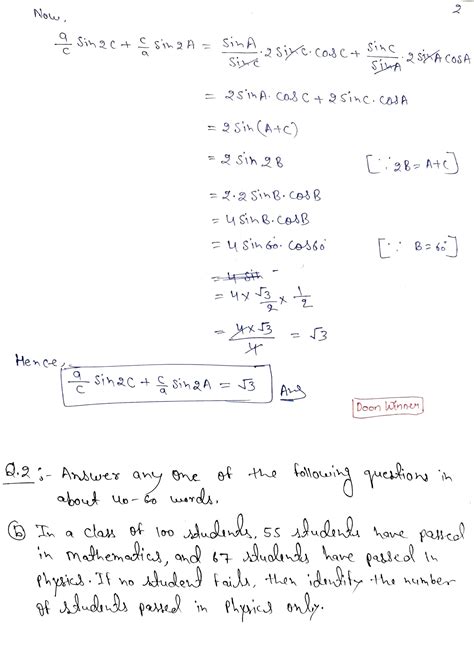 2
Now,
a/c Sin2C + c/a Sin2A = SinA/SinC · 2SinC·CosC + SinC/SinA · 2SinA CosA
= 2SinA·CosC + 2SinC·CosA
= 2Sin(A+C)
= 2Sin2B [∵ 2B = A+C]
= 2·2SinB·CosB
= 4SinB·CosB
= 4Sin60·Cos60° [∵ B = 60°]
= 4 Sin
= 4 × √3/2 × 1/2
= 4×√3/4 = √3
Hence,
a/c Sin2C + c/a Sin2A = √3 Ans
Doon Winner
Q.2 :- Answer any one of the following questions in
about 40-60 words.
(b) In a class of 100 students, 55 students have passed
in Mathematics, and 67 students have passed in
Physics. If no student fails, then identify the number
of students passed in Physics only.